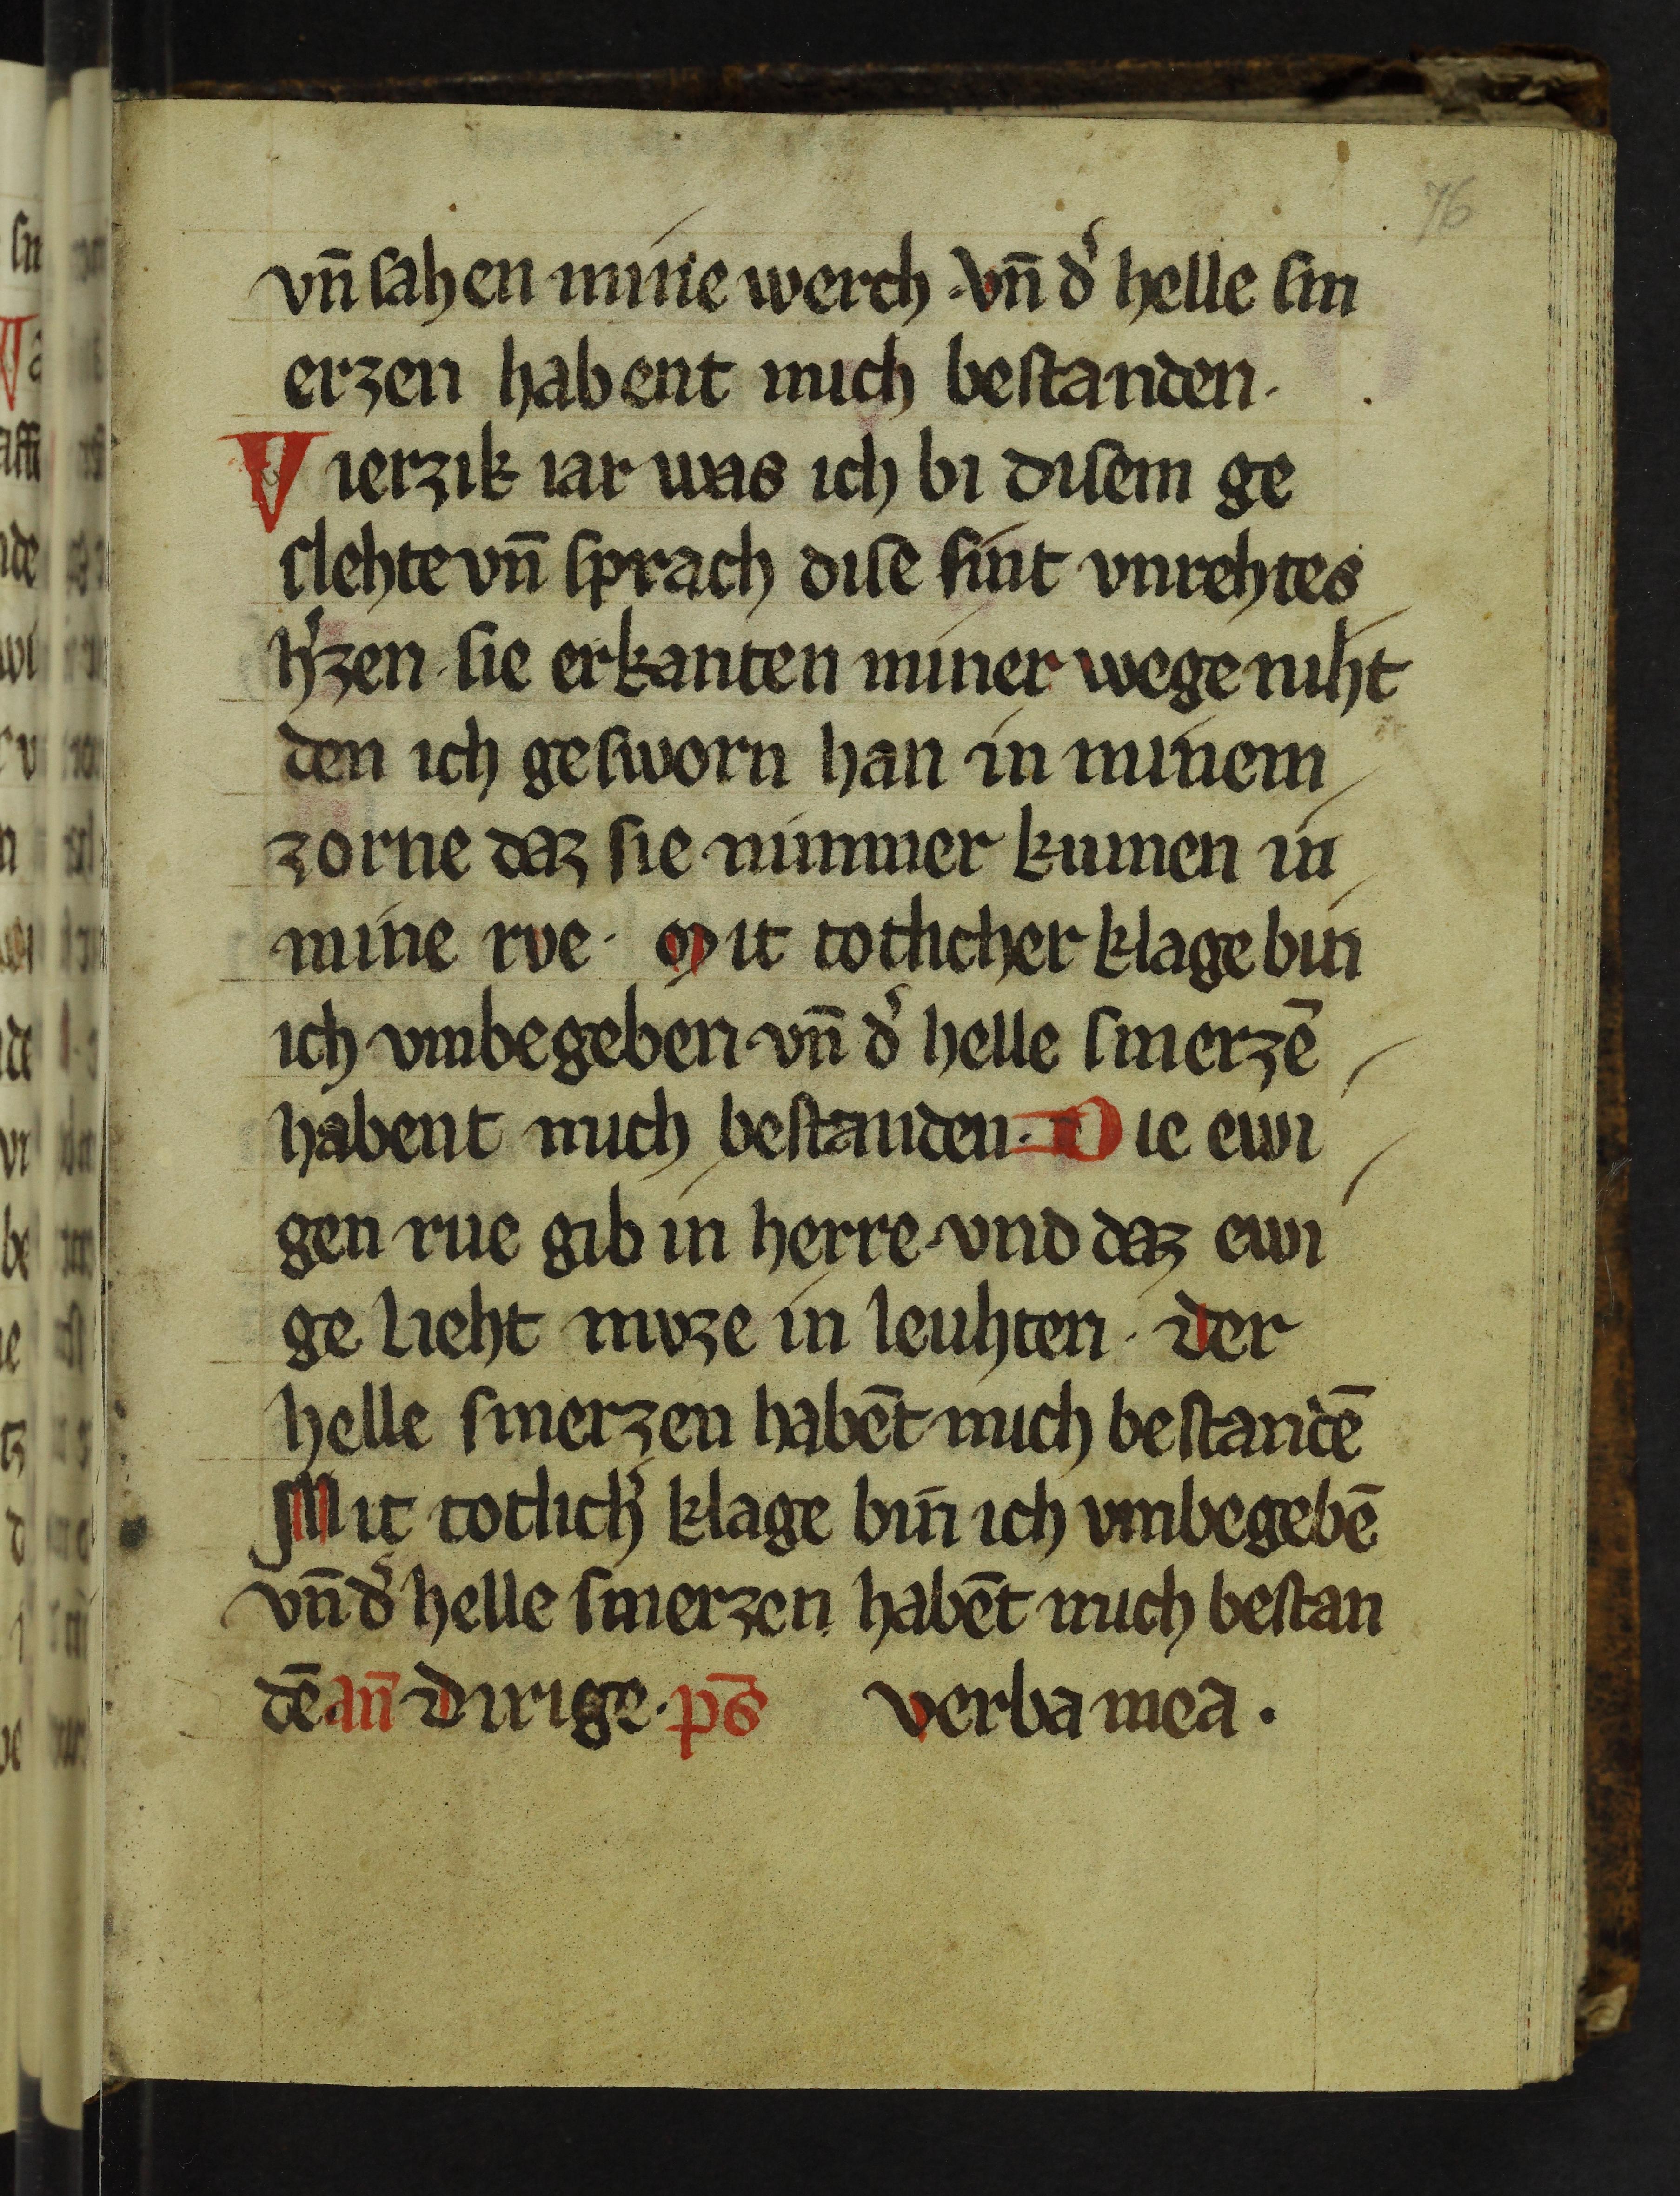 76
vn̄ ſahen mine werch · Vn̄ dˀ helle ſm
erzen habent mich beſtanden ·
Vierzik iar was ich bi diſem ge
ſlehte vn̄ ſprach diſe ſint vnrehtes
hˀzen · ſie erkanten miner wege niht
den ich geſworn han in minem
zorne daz ſie nimmer kumen in
mine rve · Mit totlicher klage bin
ich vmbegeben · vn̄ dˀ helle ſmerzē
habent mich beſtanden · Die ewi
gen rue gib in herre · vnd daz ewi
ge lieht mvze in leuhten · der
helle ſmerzen habēt mich beſtandē
Mit totlichˀ klage bin ich vmbegebē
vn̄ dˀ helle ſmerzen habēt mich beſtan
dē · an̄ Dirige · ps̄ Verba mea ·